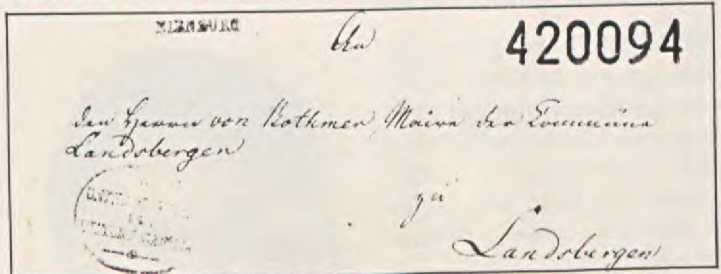 NIENBURG
An
420094
den Herrn von Bothmer, Maire der Commüne
Landsbergen
zu
Landsbergen